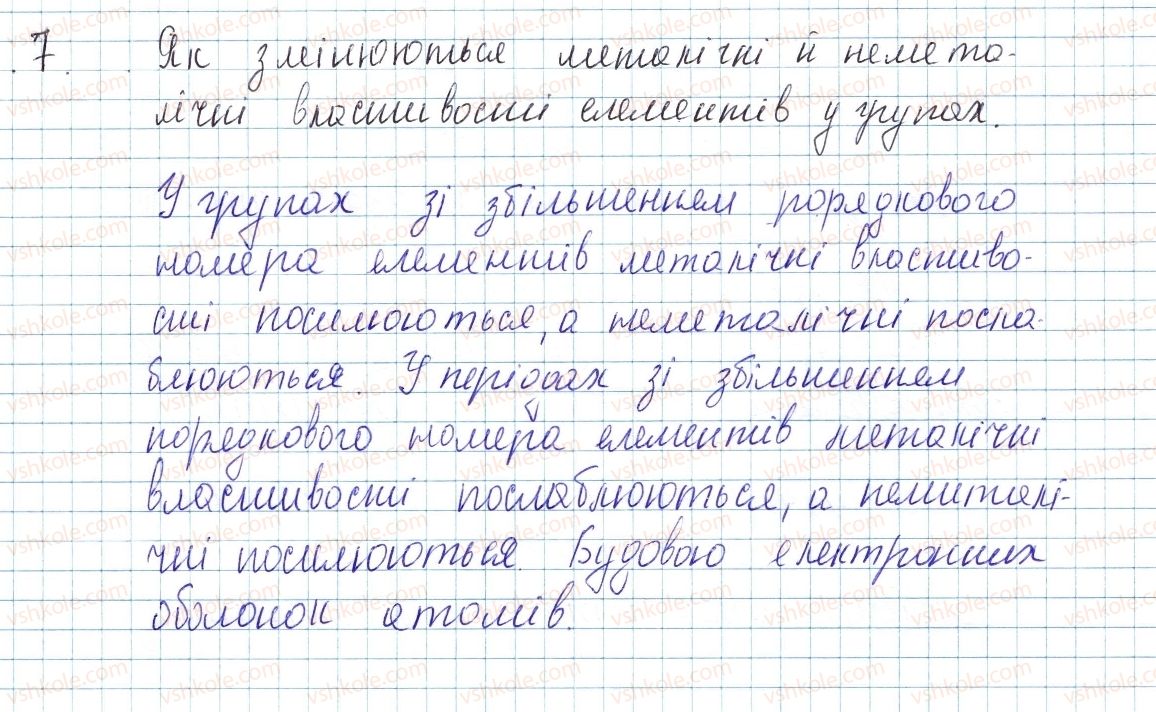 7. Як змінюються металічні й немета-
лічні властивості елементів у групах.
У групах зі збільшенням рорядкового
номера елементів металічні властиво-
сті посилюються, а неметалічні посла-
блюються. У періодах зі збільшенням
порядкового номера елементів металічні
властивості послаблюються, а немиталі-
чні посилюються. Будовою електронних
оболонок атомів.